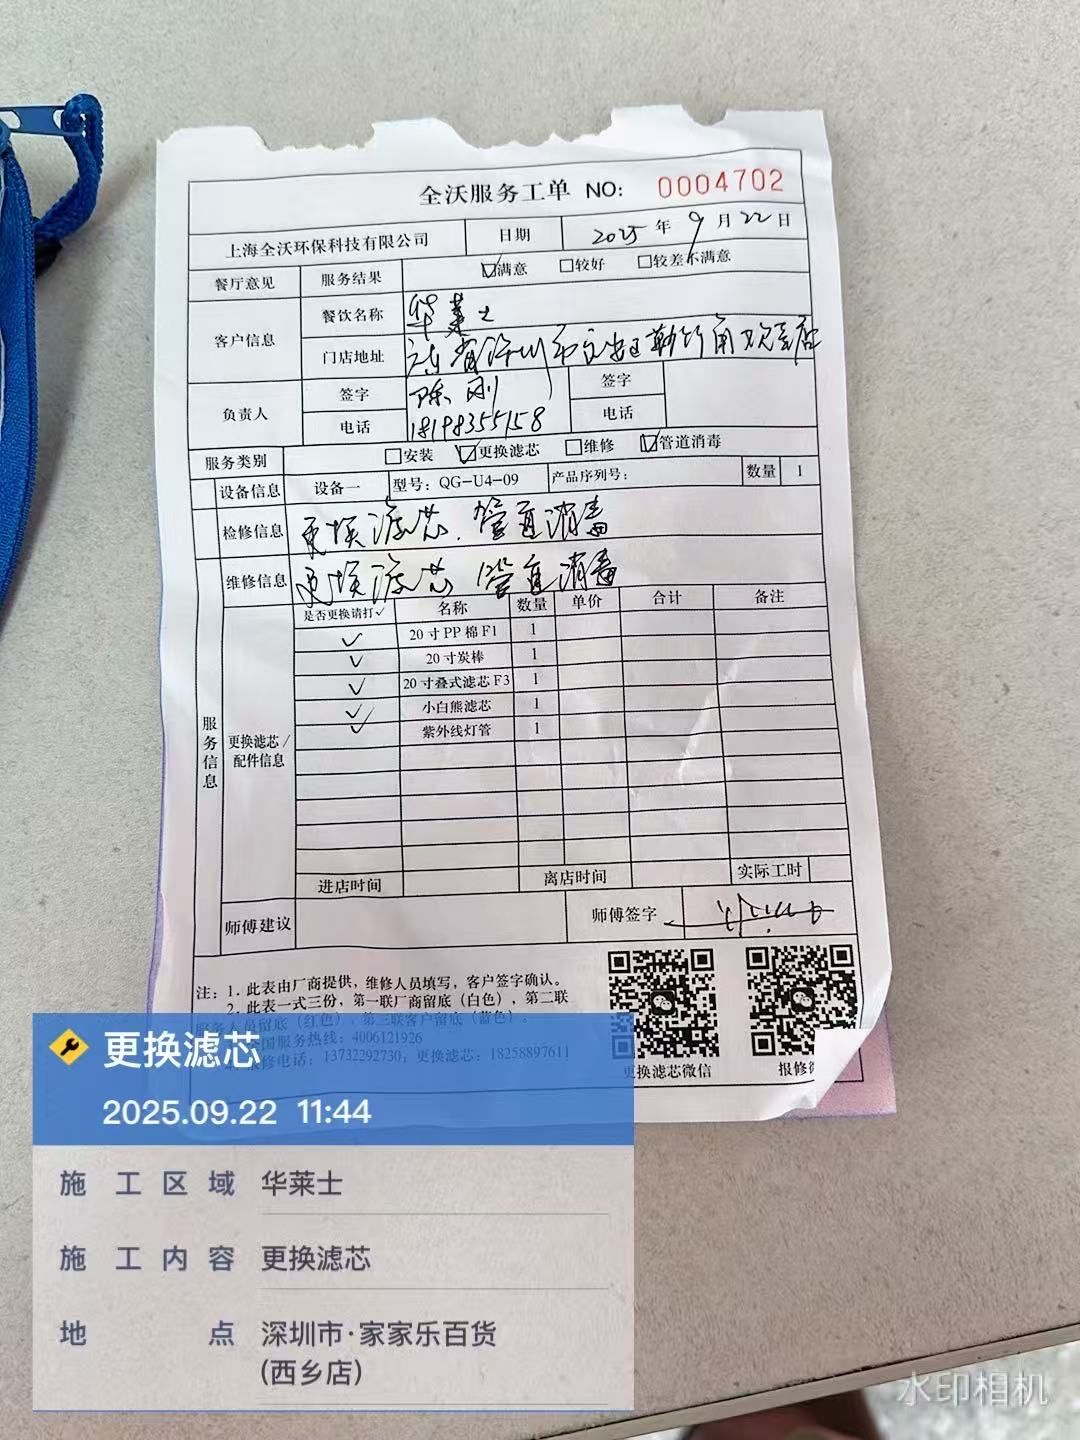 全沃服务工单 NO: 0004702
上海全沃环保科技有限公司 日期 2025 年 9 月 22 日
餐厅意见 服务结果 ☑满意 □较好 □较差不满意
客户信息 餐饮名称 华莱士
门店地址 广东省深圳市宝安区
负责人 签字 陈刚 签字
电话 18198355158 电话
服务类别 □安装 ☑更换滤芯 □维修 ☑管道消毒
设备信息 设备一 型号: QG-U4-09 产品序列号: 数量 1
检修信息 更换滤芯. 管道消毒
维修信息 更换滤芯 管道消毒
服务信息
更换滤芯/
配件信息
是否更换请打✓ 名称 数量 单价 合计 备注
✓ 20寸PP棉F1 1
✓ 20寸炭棒 1
✓ 20寸叠式滤芯F3 1
✓ 小白熊滤芯 1
✓ 紫外线灯管 1
进店时间 离店时间 实际工时
师傅建议 师傅签字
注: 1. 此表由厂商提供, 维修人员填写, 客户签字确认。
2. 此表一式三份, 第一联厂商留底 (白色) , 第二联
服务人员留底 (红色) , 第三联客户留底 (蓝色) 。
全国服务热线: 4006121926
报修电话: 13732292730; 更换滤芯: 18258897611
更换滤芯微信 报修微
更换滤芯
2025.09.22 11:44
施工区域 华莱士
施工内容 更换滤芯
地点 深圳市·家家乐百货
(西乡店)
水印相机